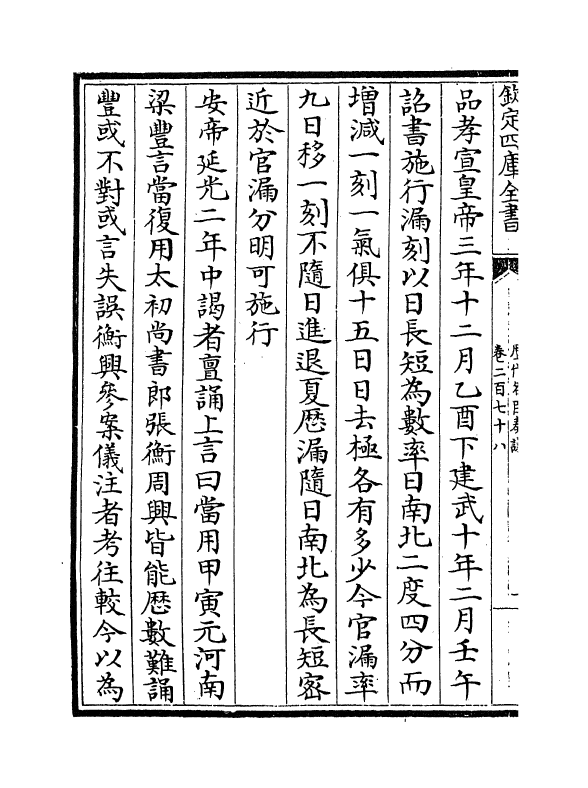 欽定四庫全書
歷代名臣奏議
卷二百七十八
品孝宣皇帝三年十二月乙酉下建武十年二月壬午
詔書施行漏刻以日長短為數率日南北二度四分而
增減一刻一氣俱十五日日去極各有多少今官漏率
九日移一刻不隨日進退夏歷漏隨日南北為長短密
近於官漏分明可施行
安帝延光二年中謁者亶誦上言曰當用甲寅元河南
梁豐言當復用太初尚書郎張衡周興皆能歷數難誦
豐或不對或言失誤衡興參案儀注者考往較今以為